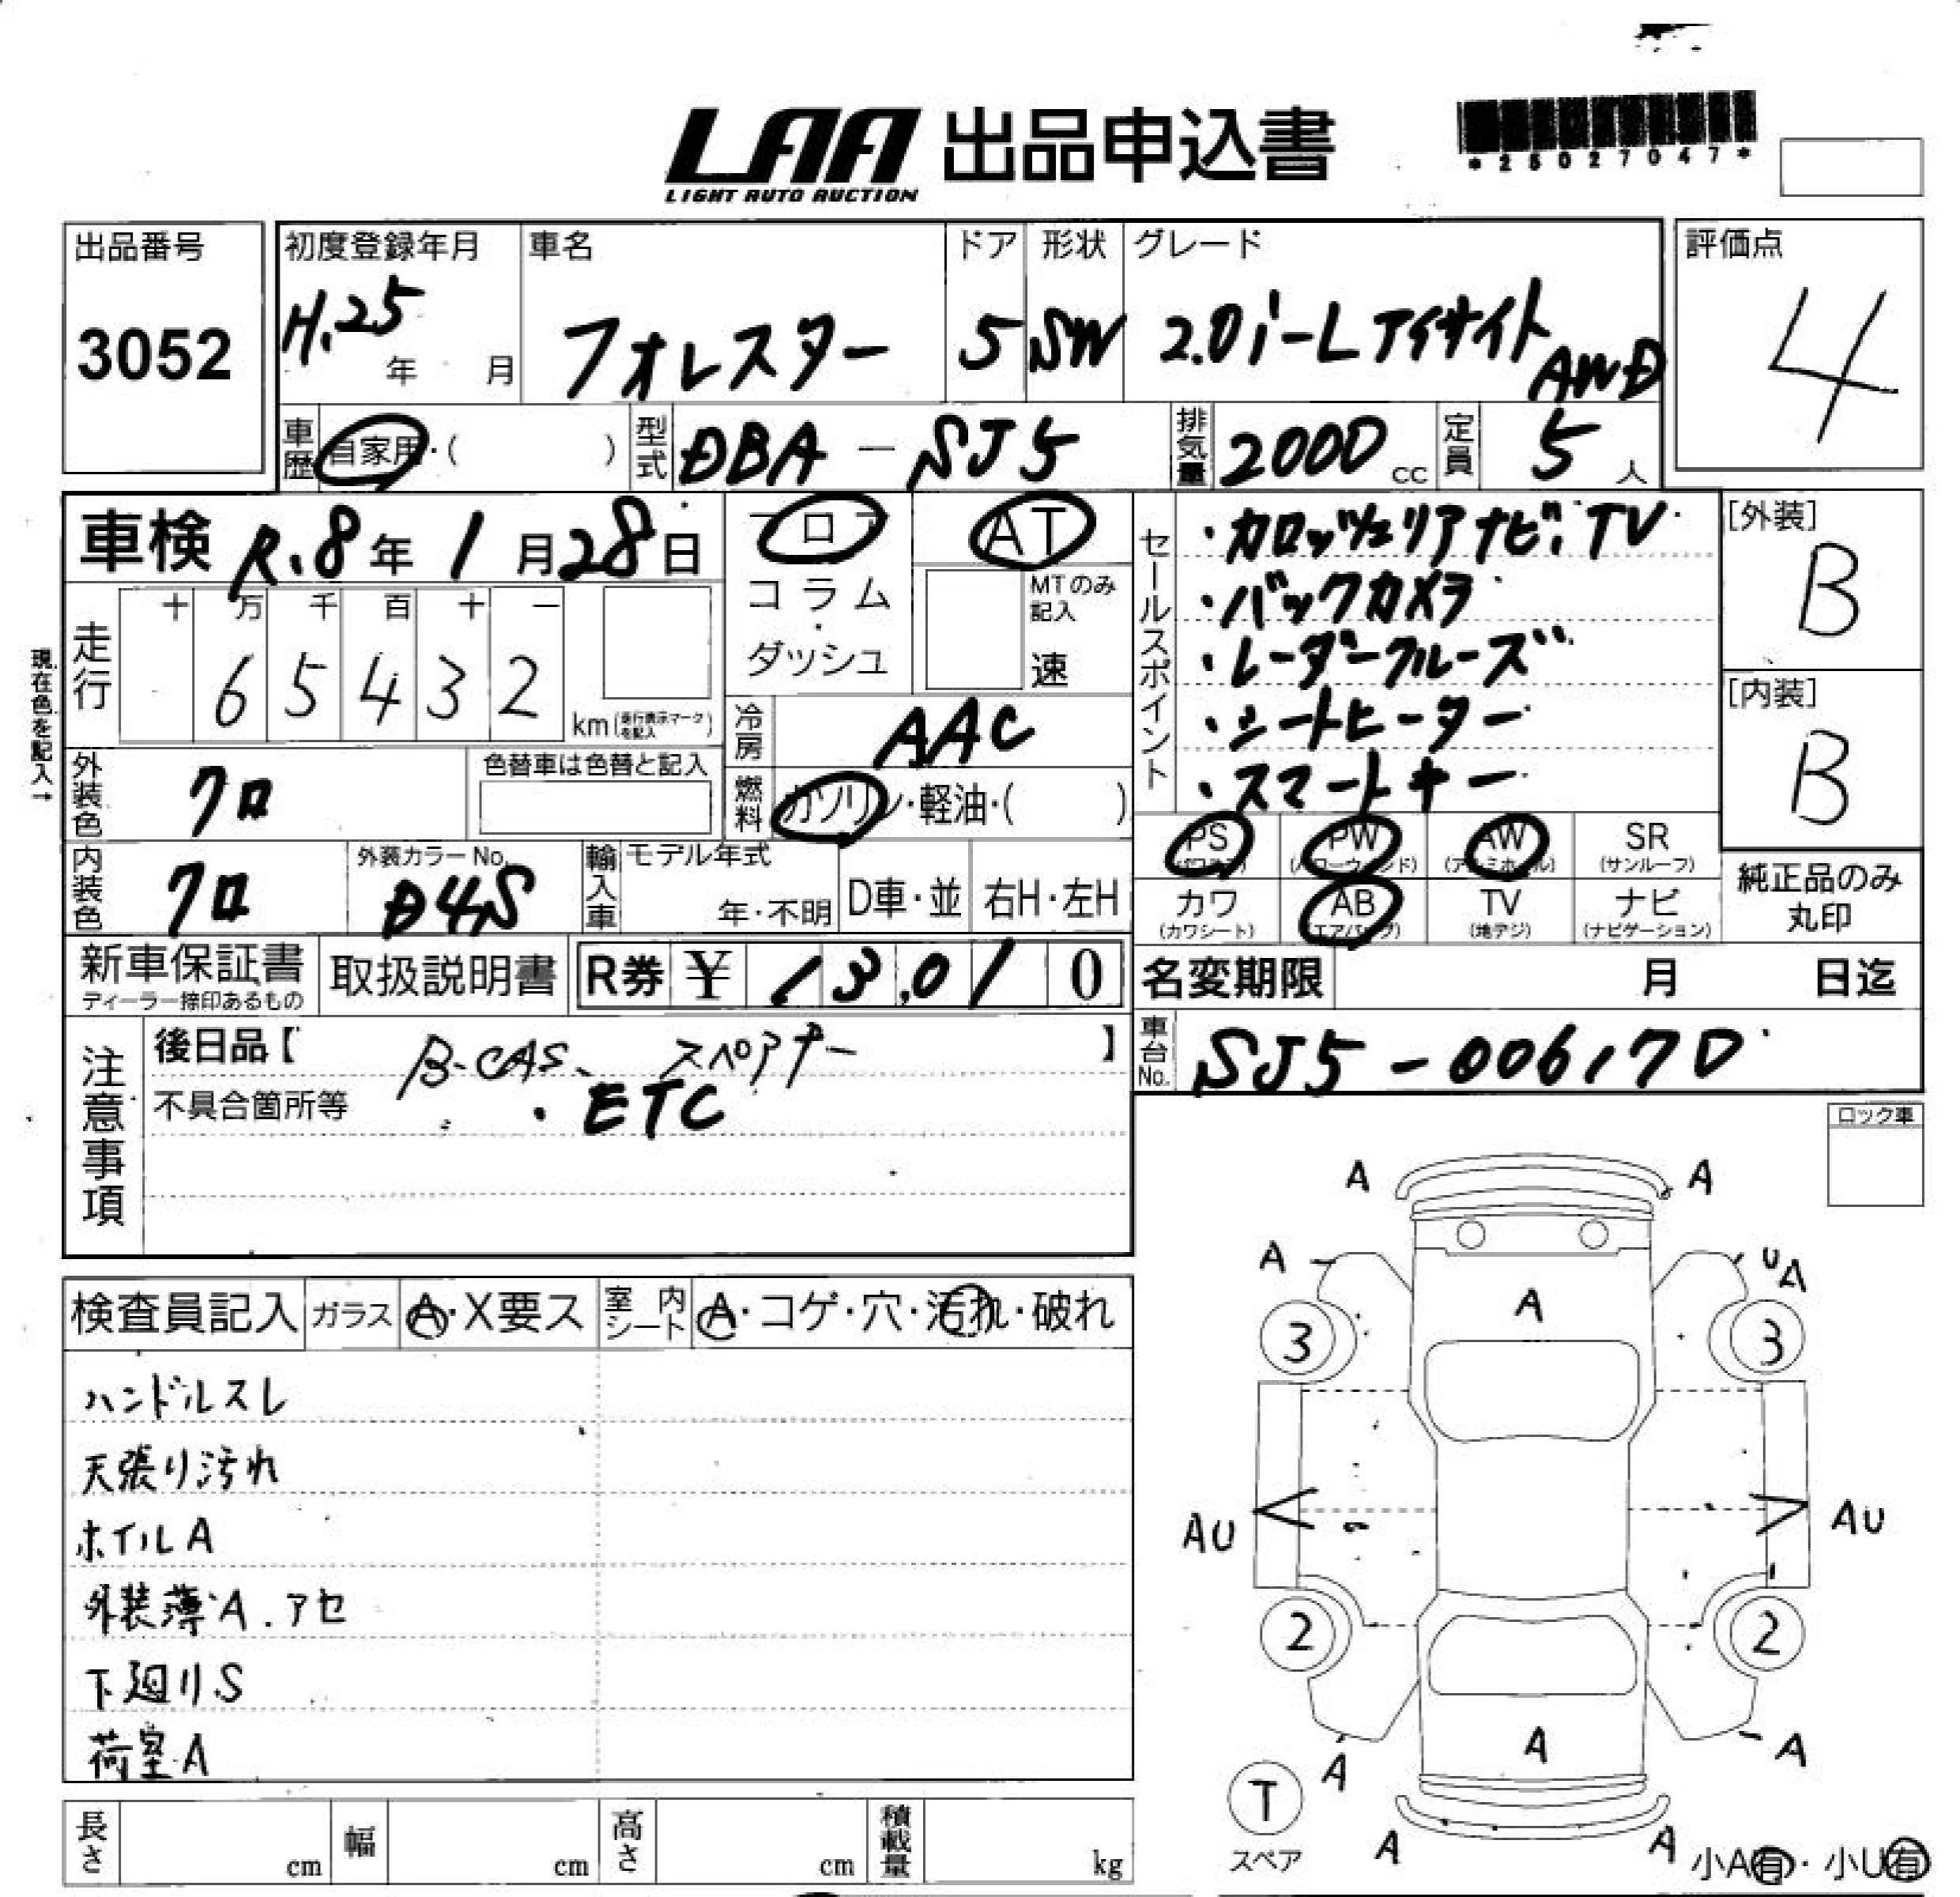 LAA 出品申込書
LIGHT AUTO AUCTION
*25027047*
出品番号
3052
初度登録年月
H.25 年 月
車名
フォレスター
ドア
5
形状
SW
グレード
2.0i-L アイサイト AWD
評価点
4
車歴 自家用・( )
型式 DBA-SJ5
排気量 2000 cc
定員 5 人
車検 R.8年 1月28日
フロア
コラム
・
ダッシュ
AT
MTのみ記入
速
走行
十 万 千 百 十 一
6 5 4 3 2
km(走行表示マークを記入)
現在色を記入→
冷房 AAC
燃料 ガソリン・軽油・( )
外装色 クロ
色替車は色替と記入
内装色 クロ
外装カラーNo. D4S
輸入車
モデル年式
年・不明
D車・並
右H・左H
セールスポイント
・カロッツェリアナビ、TV
・バックカメラ
・レーダークルーズ
・シートヒーター
・スマートキー
[外装]
B
[内装]
B
PS (パワステ)
PW (パワーウィンド)
AW (アルミホイル)
SR (サンルーフ)
カワ (カワシート)
AB (エアバッグ)
TV (地デジ)
ナビ (ナビゲーション)
純正品のみ
丸印
新車保証書
ディーラー捺印あるもの
取扱説明書
R券 ¥ 13,010
名変期限 月 日迄
車台No. SJ5-006170
注意事項
後日品【 B-CAS、スペアキー 】
不具合箇所等 ・ETC
ロック車
検査員記入
ガラス A・X要ス
室内シート A・コゲ・穴・汚れ・破れ
ハンドルスレ
天張り汚れ
ホイルA
外装薄A.アセ
下廻りS
荷室A
A A
A UA
A
3 3
AU AU
2 2
A A A
T
スペア
A A
小A有・小U有
長さ cm
幅 cm
高さ cm
積載量 kg